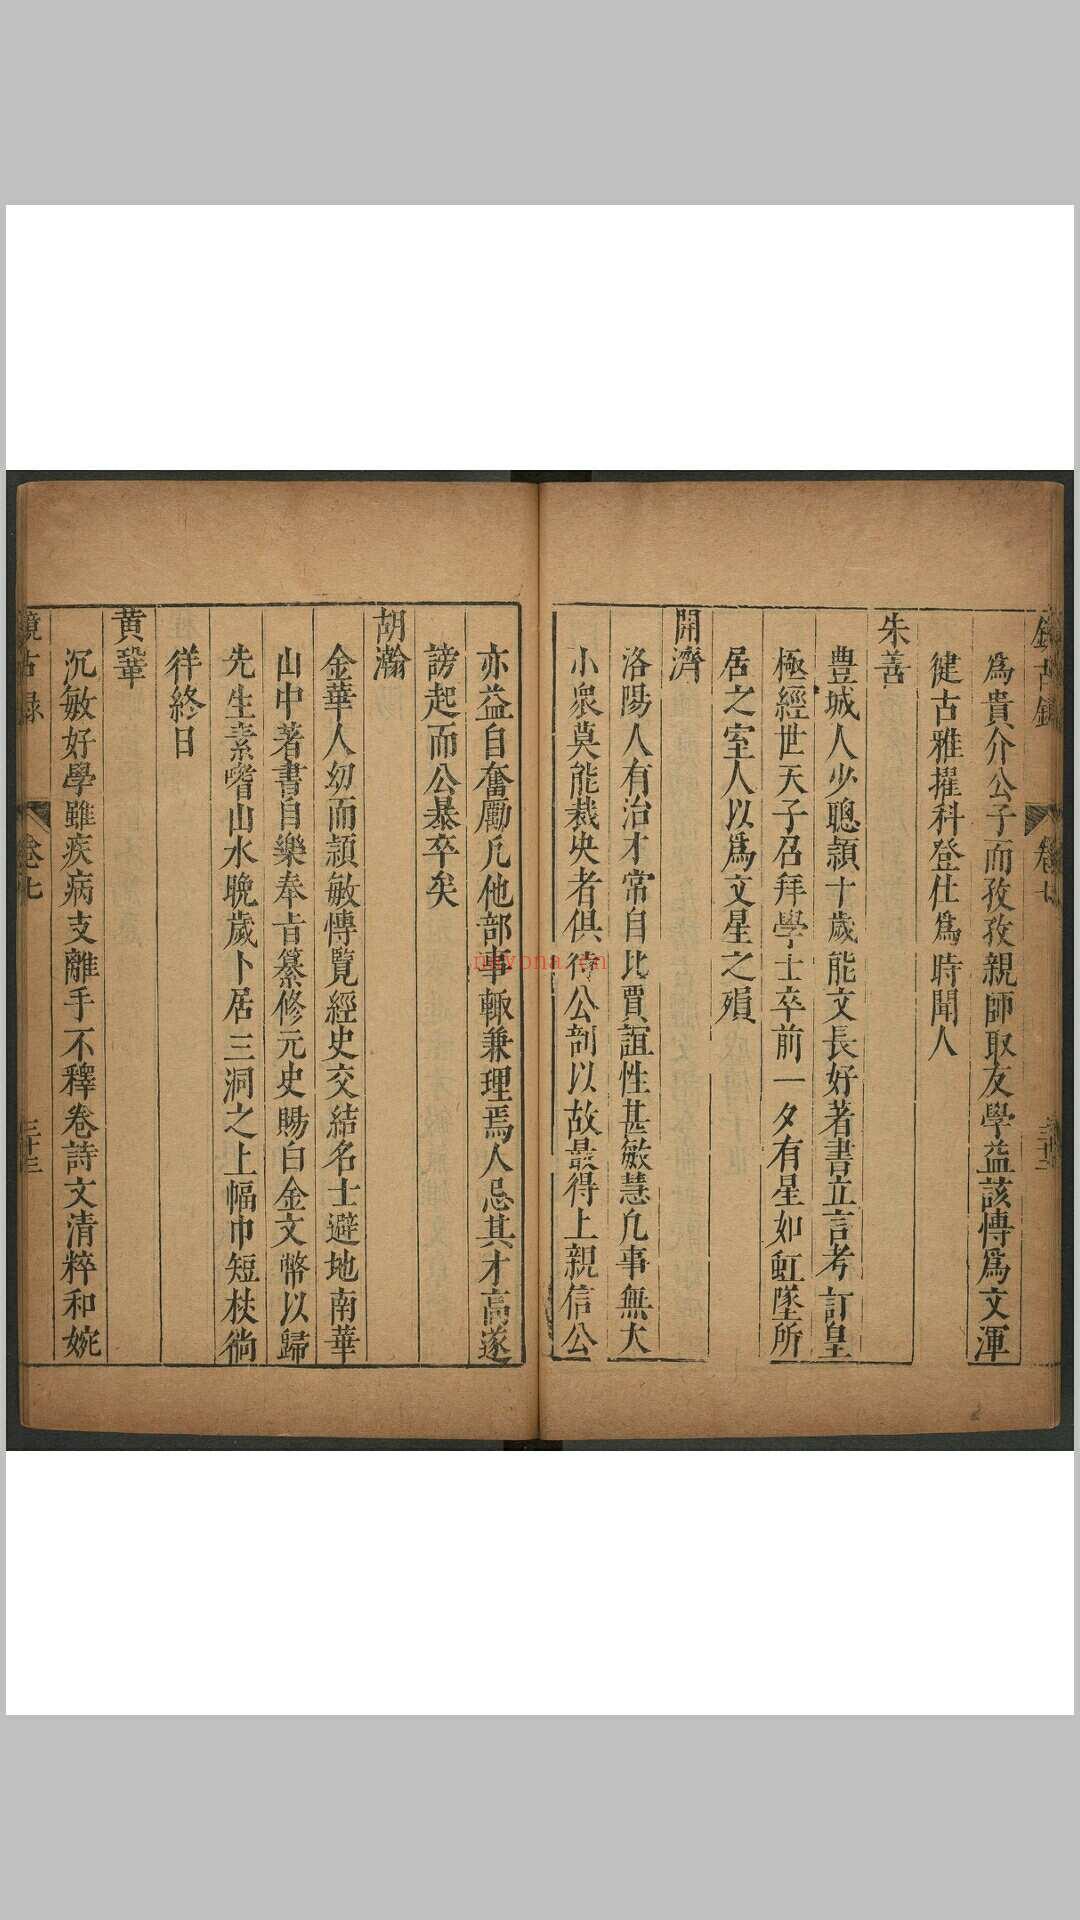 爲貴介公子而孜孜親師取友學益該博爲文渾
健古雅擢科登仕爲時聞人
朱善
豊城人少聰頴十歲能文長好著書立言考訂皇
極經世天子召拜學士卒前一夕有星如虹墜所
居之室人以爲文星之殞
開濟
洛陽人有治才常自比賈誼性甚敏慧凡事無大
小衆莫能裁决者俱待公剖以故最得上親信公
亦益自奮勵凡他部事輙兼理焉人忌其才高遂
謗起而公暴卒矣
胡瀚
金華人幼而頴敏博覽經史交結名士避地南華
山中著書自樂奉旨纂修元史賜白金文幣以歸
先生素嗜山水晩歲卜居三洞之上幅巾短杖徜
徉終日
黄鞏
沉敏好學雖疾病支離手不釋卷詩文清粹和婉
鏡古録 卷七 三十三
nayona.cn